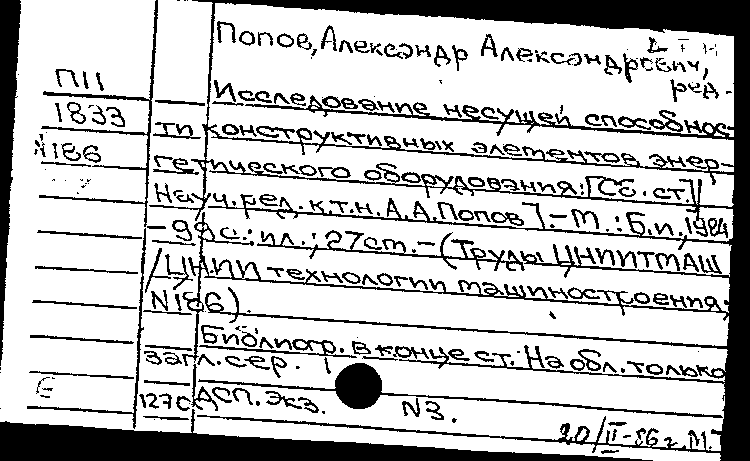 Д Т Н
Попов, Александр Александрович,
ред.
П11
1833
N186
Исследование несущей способнос-
ти конструктивных элементов энер-
гетического оборудования: [Сб. ст.] /
Науч. ред. к.т.н. А.А. Попов]. - М.: Б.и., 1984
- 99 с.: ил.; 27 см. - (Труды ЦНИИТМАШ
/ЦНИИ технологии машиностроения;
N186).
Библиогр. в конце ст. На обл. только
загл. сер.
Є
ДСП. Экз. N3.
20/II-86 г. М.